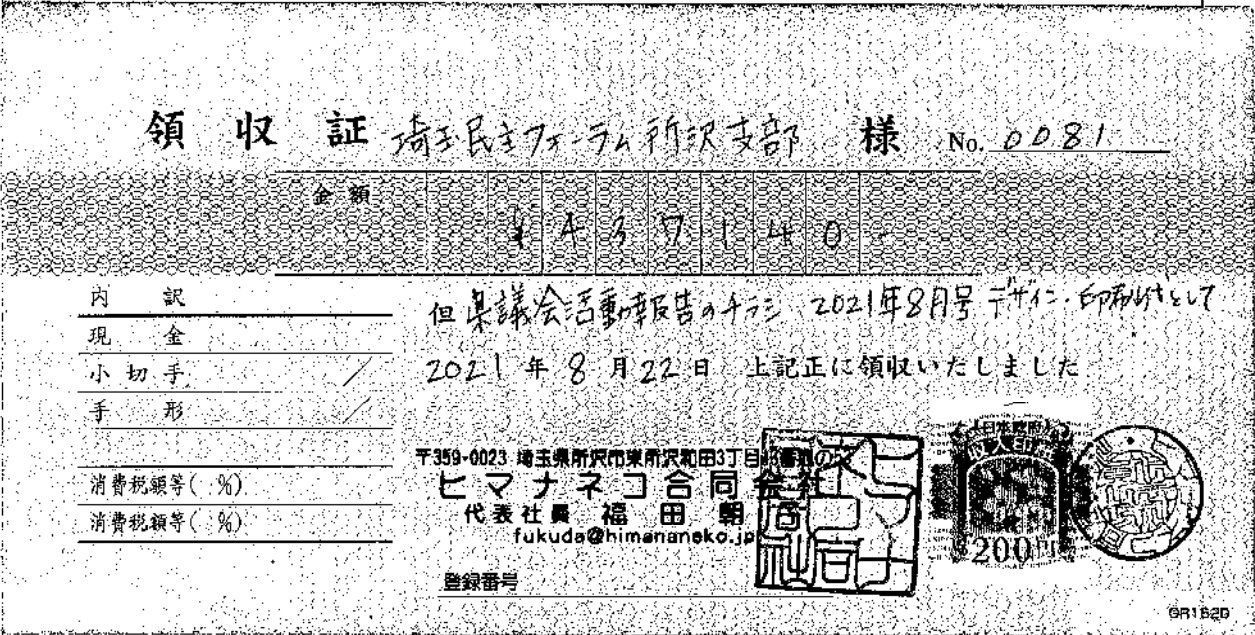 領収証 埼玉民主フォーラム所沢支部 様 No. 0081
金額 ¥437140-
内訳
現金
小切手
手形
消費税額等( %)
消費税額等( %)
但 県議会活動報告のチラシ 2021年8月号 デザイン・印刷代として
2021年8月22日 上記正に領収いたしました
〒359-0023 埼玉県所沢市東所沢和田3丁目
ヒマナネコ合同会社
代表社員 福田
fukuda@himananeko.jp
登録番号
日本政府
収入印紙
200円
GR1620